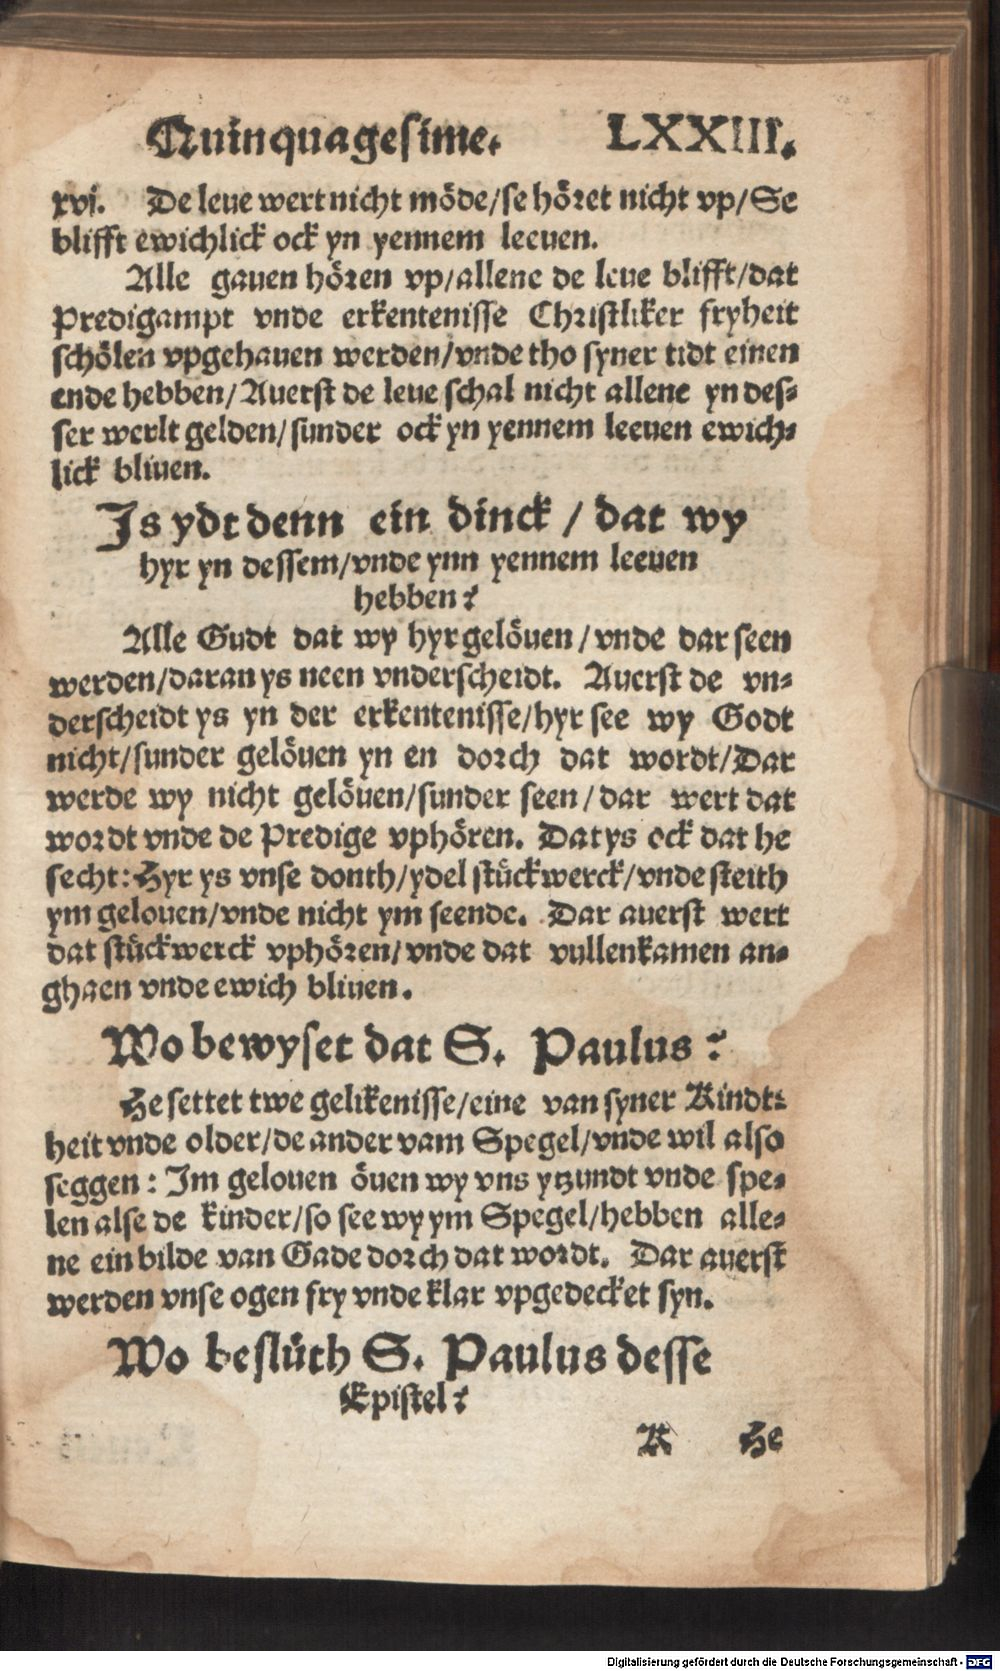 Quinquagesime. LXXIII.
xvj. De leue wert nicht möde/se höret nicht vp/Se
blifft ewichlick ock yn yennem leeuen.
Alle gauen hören vp/allene de leue blifft/dat
Predigampt vnde erkentenisse Christliker fryheit
schölen vpgehauen werden/vnde tho syner tidt einen
ende hebben/Auerst de leue schal nicht allene yn des-
ser werlt gelden/sunder ock yn yennem leeuen ewich-
lick bliuen.
Js ydt denn ein dinck / dat wy
hyr yn dessem/vnde ynn yennem leeuen
hebben?
Alle Gudt dat wy hyr gelöuen/vnde dar seen
werden/daran ys neen vnderscheidt. Auerst de vn-
derscheidt ys yn der erkentenisse/hyr see wy Godt
nicht/sunder gelöuen yn en dorch dat wordt/Dar
werde wy nicht gelöuen/sunder seen/dar wert dat
wordt vnde de Predige vphören. Dat ys ock dat he
secht: Hyr ys vnse donth/ydel stückwerck/vnde steith
ym gelouen/vnde nicht ym seende. Dar auerst wert
dat stückwerck vphören/vnde dat vullenkamen an-
ghaen vnde ewich bliuen.
Wo bewyset dat S. Paulus?
He settet twe gelikenisse/eine van syner Kindt-
heit vnde older/de ander vam Spegel/vnde wil also
seggen: Im gelouen öuen wy vns ytzundt vnde spe-
len alse de kinder/so see wy ym Spegel/hebben alle-
ne ein bilde van Gade dorch dat wordt. Dar auerst
werden vnse ogen fry vnde klar vpgedecket syn.
Wo beslüth S. Paulus desse
Epistel?
K He
Digitalisierung gefördert durch die Deutsche Forschungsgemeinschaft - DFG